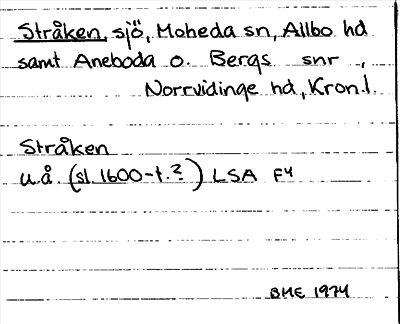 Stråken, sjö, Moheda sn, Allbo hd
samt Aneboda o. Bergs snr,
Norrvidinge hd, Kron.l.
Stråken
u.å. (sl. 1600-t.?) LSA F4
BME 1974